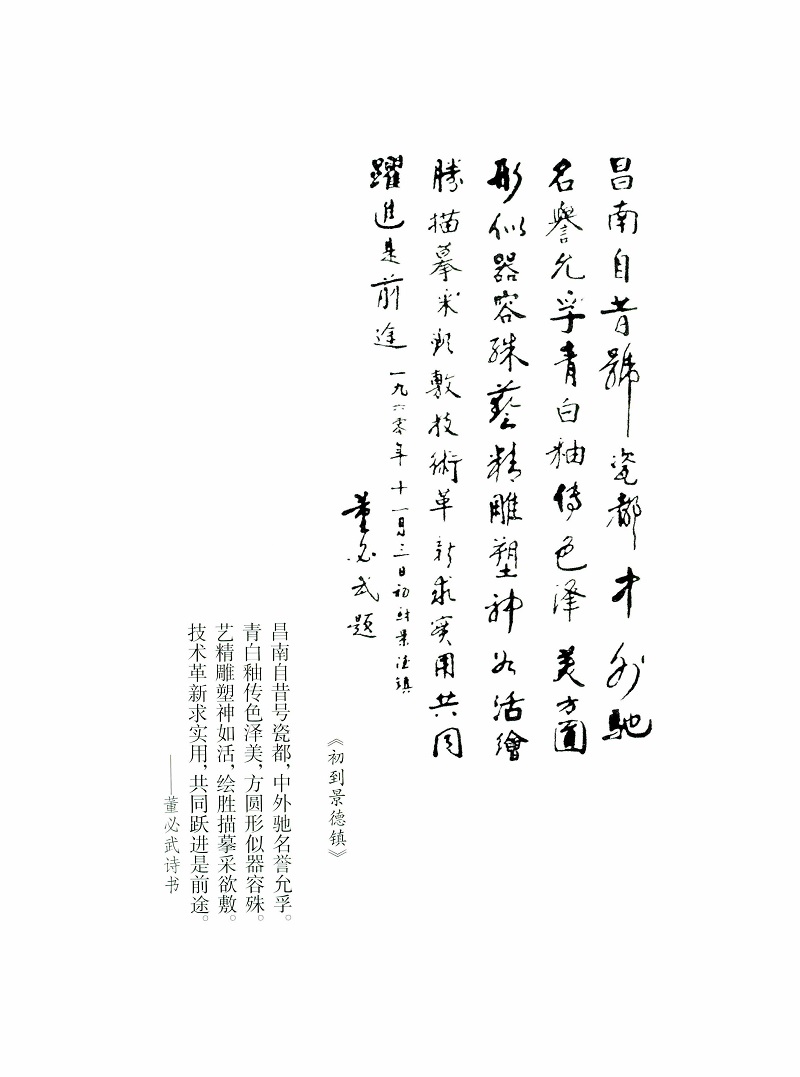 昌南自昔號瓷都中外馳
名譽允孚青白釉傳色澤美方圓
形似器容殊藝精雕塑神如活繪
勝描摹采欲敷技術革新求實用共同
躍進是前途
一九六零年十一月三日初到景德鎮
董必武題
《初到景德镇》
昌南自昔号瓷都，中外驰名誉允孚。
青白釉传色泽美，方圆形似器容殊。
艺精雕塑神如活，绘胜描摹采欲敷。
技术革新求实用，共同跃进是前途。
——董必武诗书